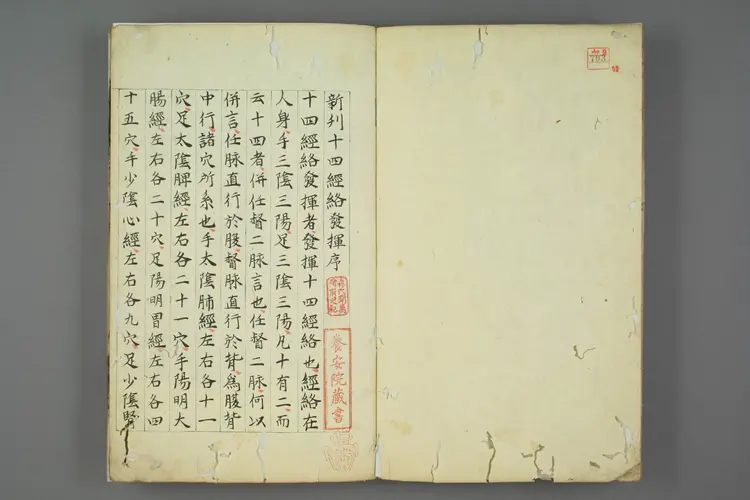 新刋十四經絡發揮序
十四經絡發揮者發揮十四經絡也經絡在
人身手三陰三陽足三陰三陽凡十有二而
云十四者併任督二脉言也任督二脉何以
併言任脉直行於腹督脉直行於背爲腹背
中行諸穴所系也手太陰肺經左右各十一
穴足太陰脾經左右各二十一穴手陽明大
腸經左右各二十穴足陽明胃經左右各四
十五穴手少陰心經左右各九穴足少陰腎
養安院藏書